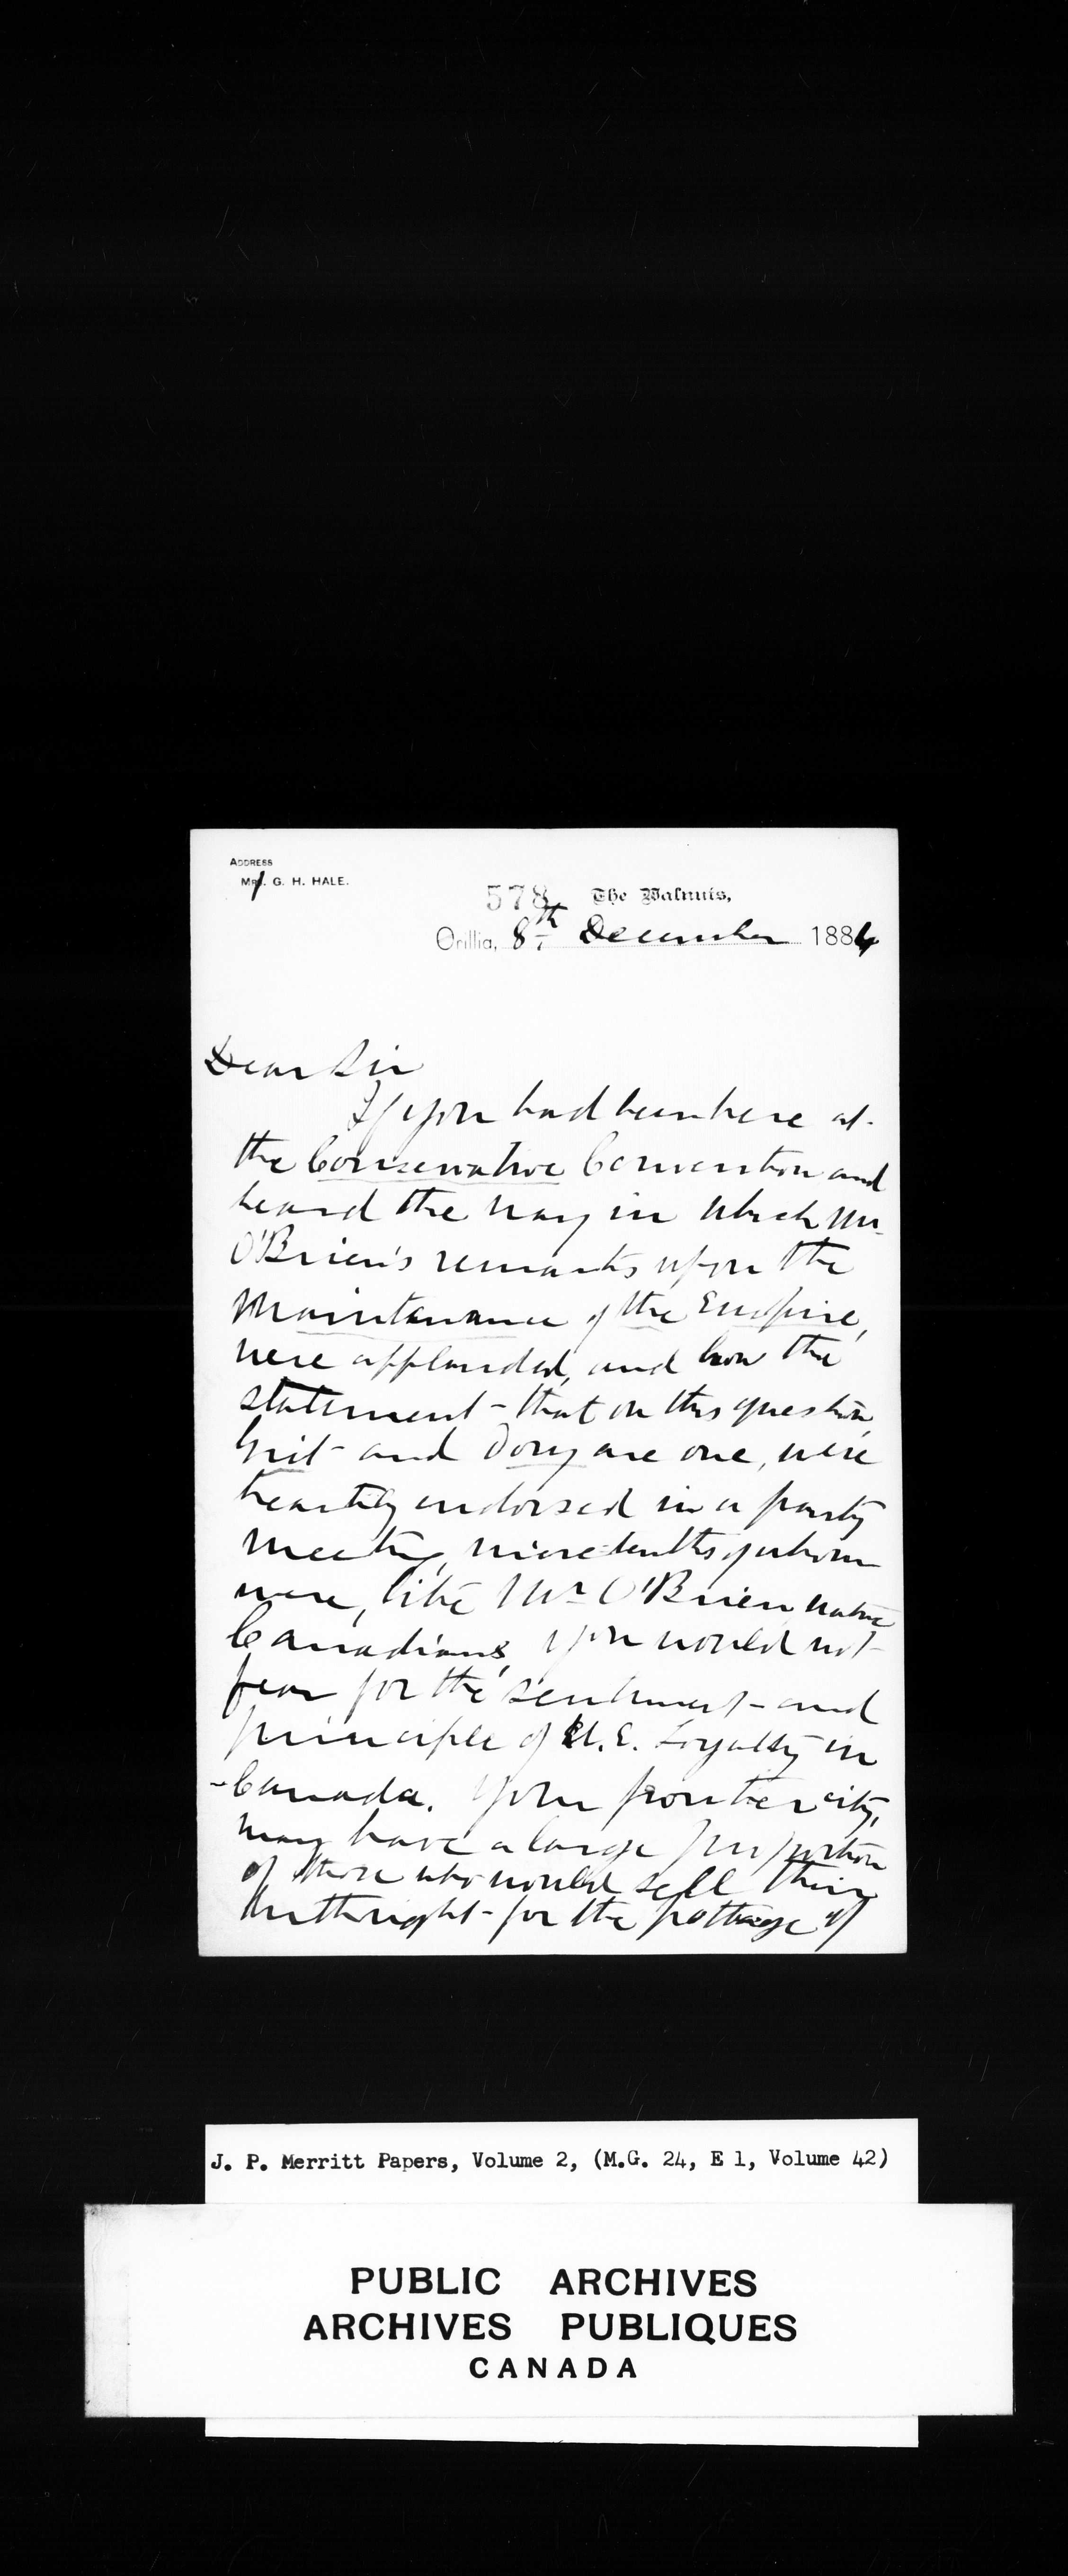 ADDRESS
MRS. G. H. HALE.
578 The Walnuts,
Orillia, 8th December 1884
Dear Sir
If you had been here at
the Conservative Convention and
heard the way in which Mr
O'Brien's remarks upon the
Maintenance of the Empire,
were applauded, and how the
statement - that on this question,
Grit - and Tory are one, were
heartily endorsed in a party
meeting, nine tenths of whom
were, like Mr O'Brien native
Canadians, you would not
fear for the sentiment - and
principle of U.E. Loyalty in
Canada. Your frontier city,
may have a large proportion
of those who would sell their
birthright - for the pottage of
J. P. Merritt Papers, Volume 2, (M.G. 24, E 1, Volume 42)
PUBLIC ARCHIVES
ARCHIVES PUBLIQUES
CANADA